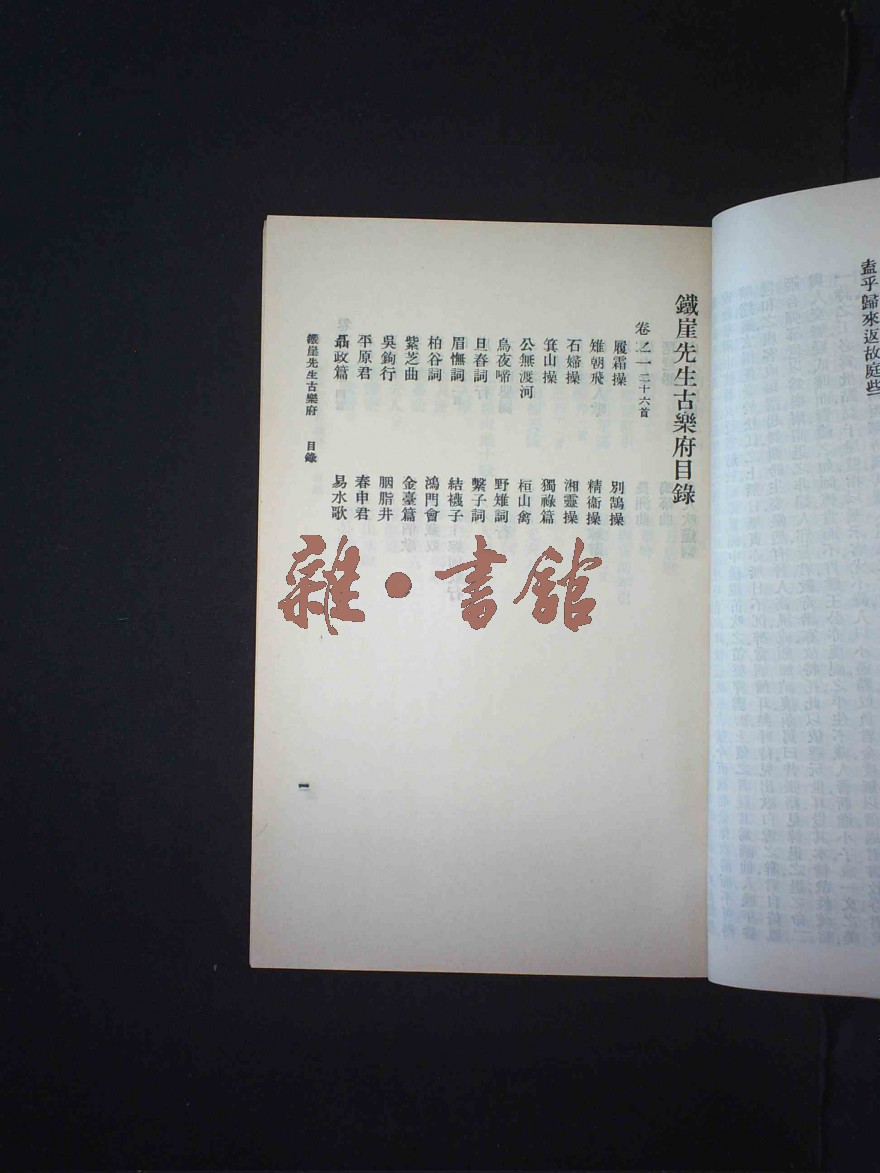 盍乎歸來返故庭些
鐵崖先生古樂府目錄
卷之一 三十六首
履霜操 別鵠操
雉朝飛 精衞操
石婦操 湘靈操
箕山操 獨祿篇
公無渡河 桓山禽
烏夜啼 野雉詞
旦春詞 繫子詞
眉憮詞 結襪子
柏谷詞 鴻門會
紫芝曲 金臺篇
吳鉤行 胭脂井
平原君 春申君
聶政篇 易水歌
鐵崖先生古樂府 目錄
一
雜·書館